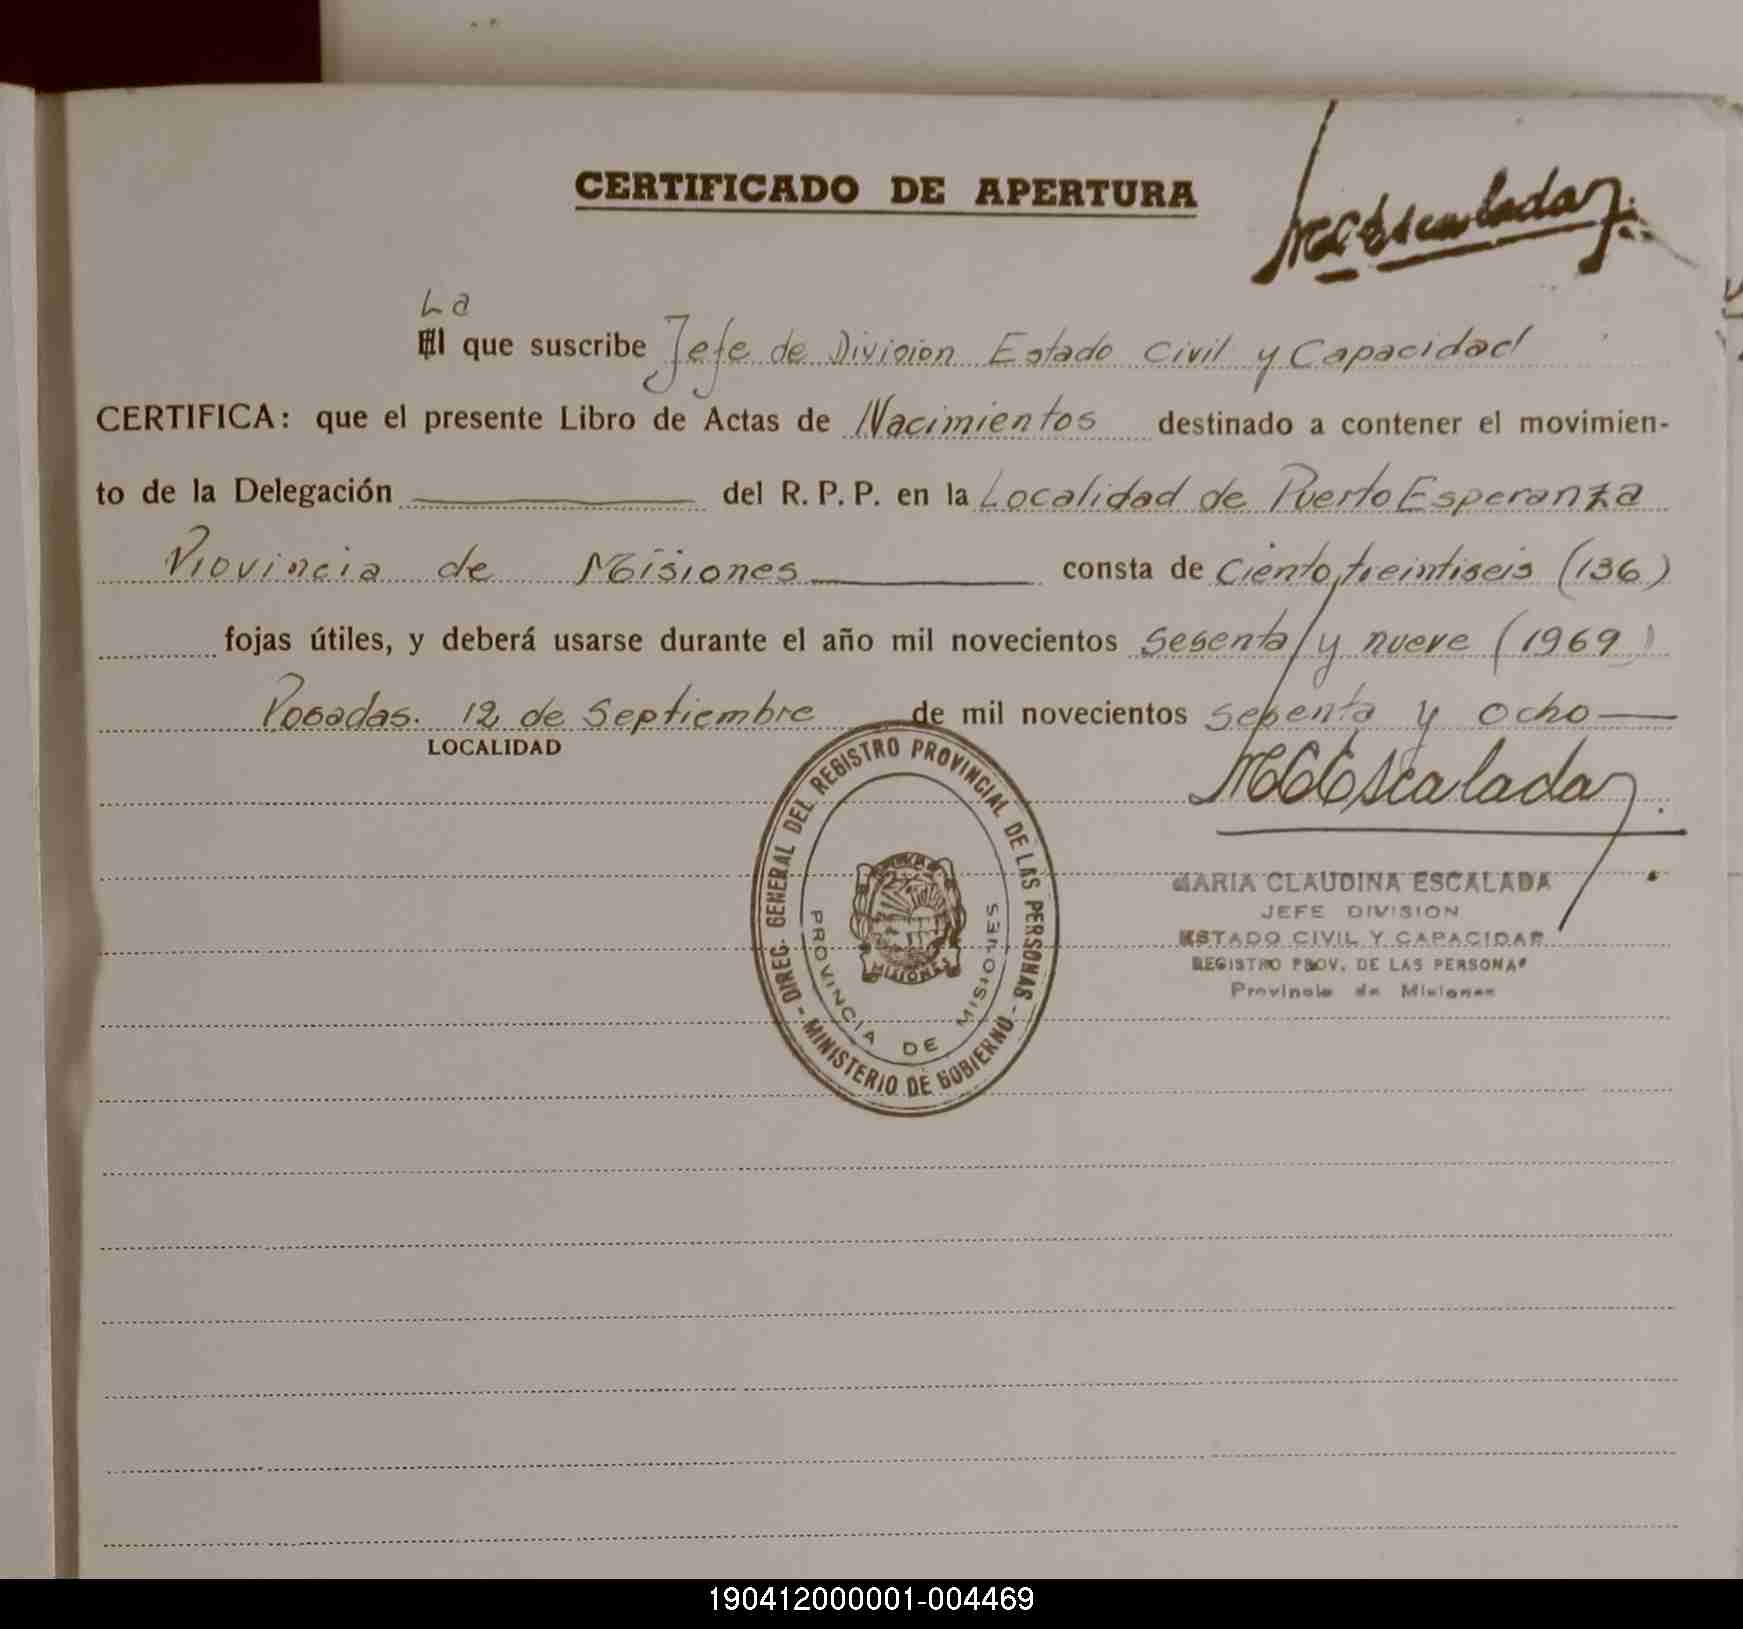 CERTIFICADO DE APERTURA
MCEscalada
La
El que suscribe Jefe de División Estado Civil y Capacidad
CERTIFICA: que el presente Libro de Actas de Nacimientos destinado a contener el movimien-
to de la Delegación del R. P. P. en la Localidad de Puerto Esperanza
Provincia de Misiones consta de Ciento treintiseis (136)
fojas útiles, y deberá usarse durante el año mil novecientos sesenta y nueve (1969)
Posadas. 12 de Septiembre de mil novecientos sesenta y ocho
LOCALIDAD
MCEscalada
DIREC. GENERAL DEL REGISTRO PROVINCIAL DE LAS PERSONAS - MINISTERIO DE GOBIERNO -
PROVINCIA DE MISIONES
MISIONES
MARIA CLAUDINA ESCALADA
JEFE DIVISION
ESTADO CIVIL Y CAPACIDAD
REGISTRO PROV. DE LAS PERSONAS
Provincia de Misiones
190412000001-004469